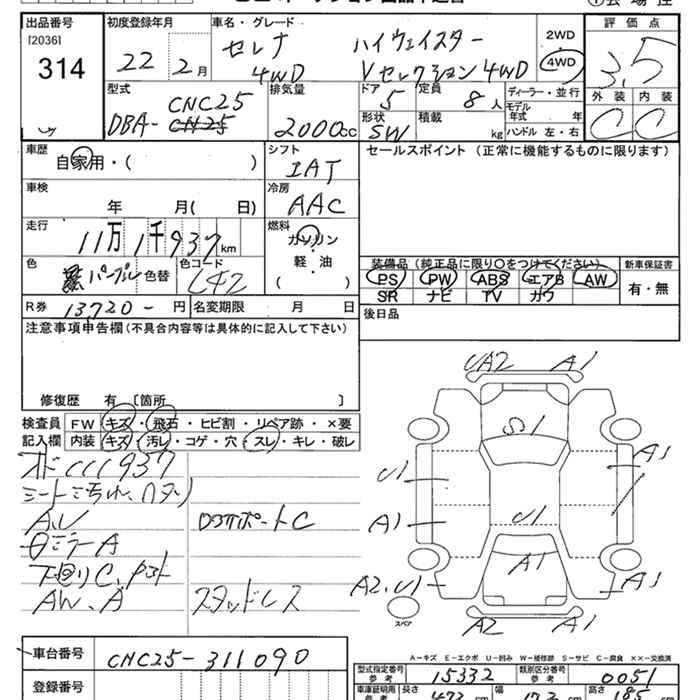 出品番号 [2036]
314
初度登録年月
22年 2月
車名・グレード
セレナ ハイウェイスター
4WD Vセレクション 4WD
2WD
4WD
評価点
3.5
外装 内装
C C
型式
DBA- CNC25
排気量
2000cc
ドア 5
定員 8人
ディーラー・並行
モデル年式 年
形状 SW
積載 kg
ハンドル 左・右
車歴
自家用・( )
シフト
IAT
セールスポイント(正常に機能するものに限ります)
車検
年 月( 日)
冷房
AAC
走行
11万1千937km
燃料
ガソリン
軽・油
( )
色
パープル
色替
色コード
L42
装備品(純正品に限り○をつけてください)
PS PW ABS エアB AW
SR ナビ TV カワ
新車保証書
有・無
R券 13720-円
名変期限 月 日
後日品
注意事項申告欄(不具合内容等は具体的に記入して下さい)
修復歴 有〔箇所 〕
検査員記入欄
FW キズ・飛石・ヒビ割・リペア跡・×要
内装 キズ・汚レ・コゲ・穴・スレ・キレ・破レ
A.U
ミラーA
下回りC
AW.A
スタッドレス
UA2 A1
S1
U1
A1
A1
U1
A1
A2.U1
A1
A2 A1
スペア
A-キズ E-エクボ U-凹み W-補修跡 S-サビ C-腐食 ××-交換済
車台番号
CNC25-311090
登録番号
型式指定番号 参考
15332
類別区分番号 参考
0051
車庫証明用 参考
長さ
幅
高さ
185